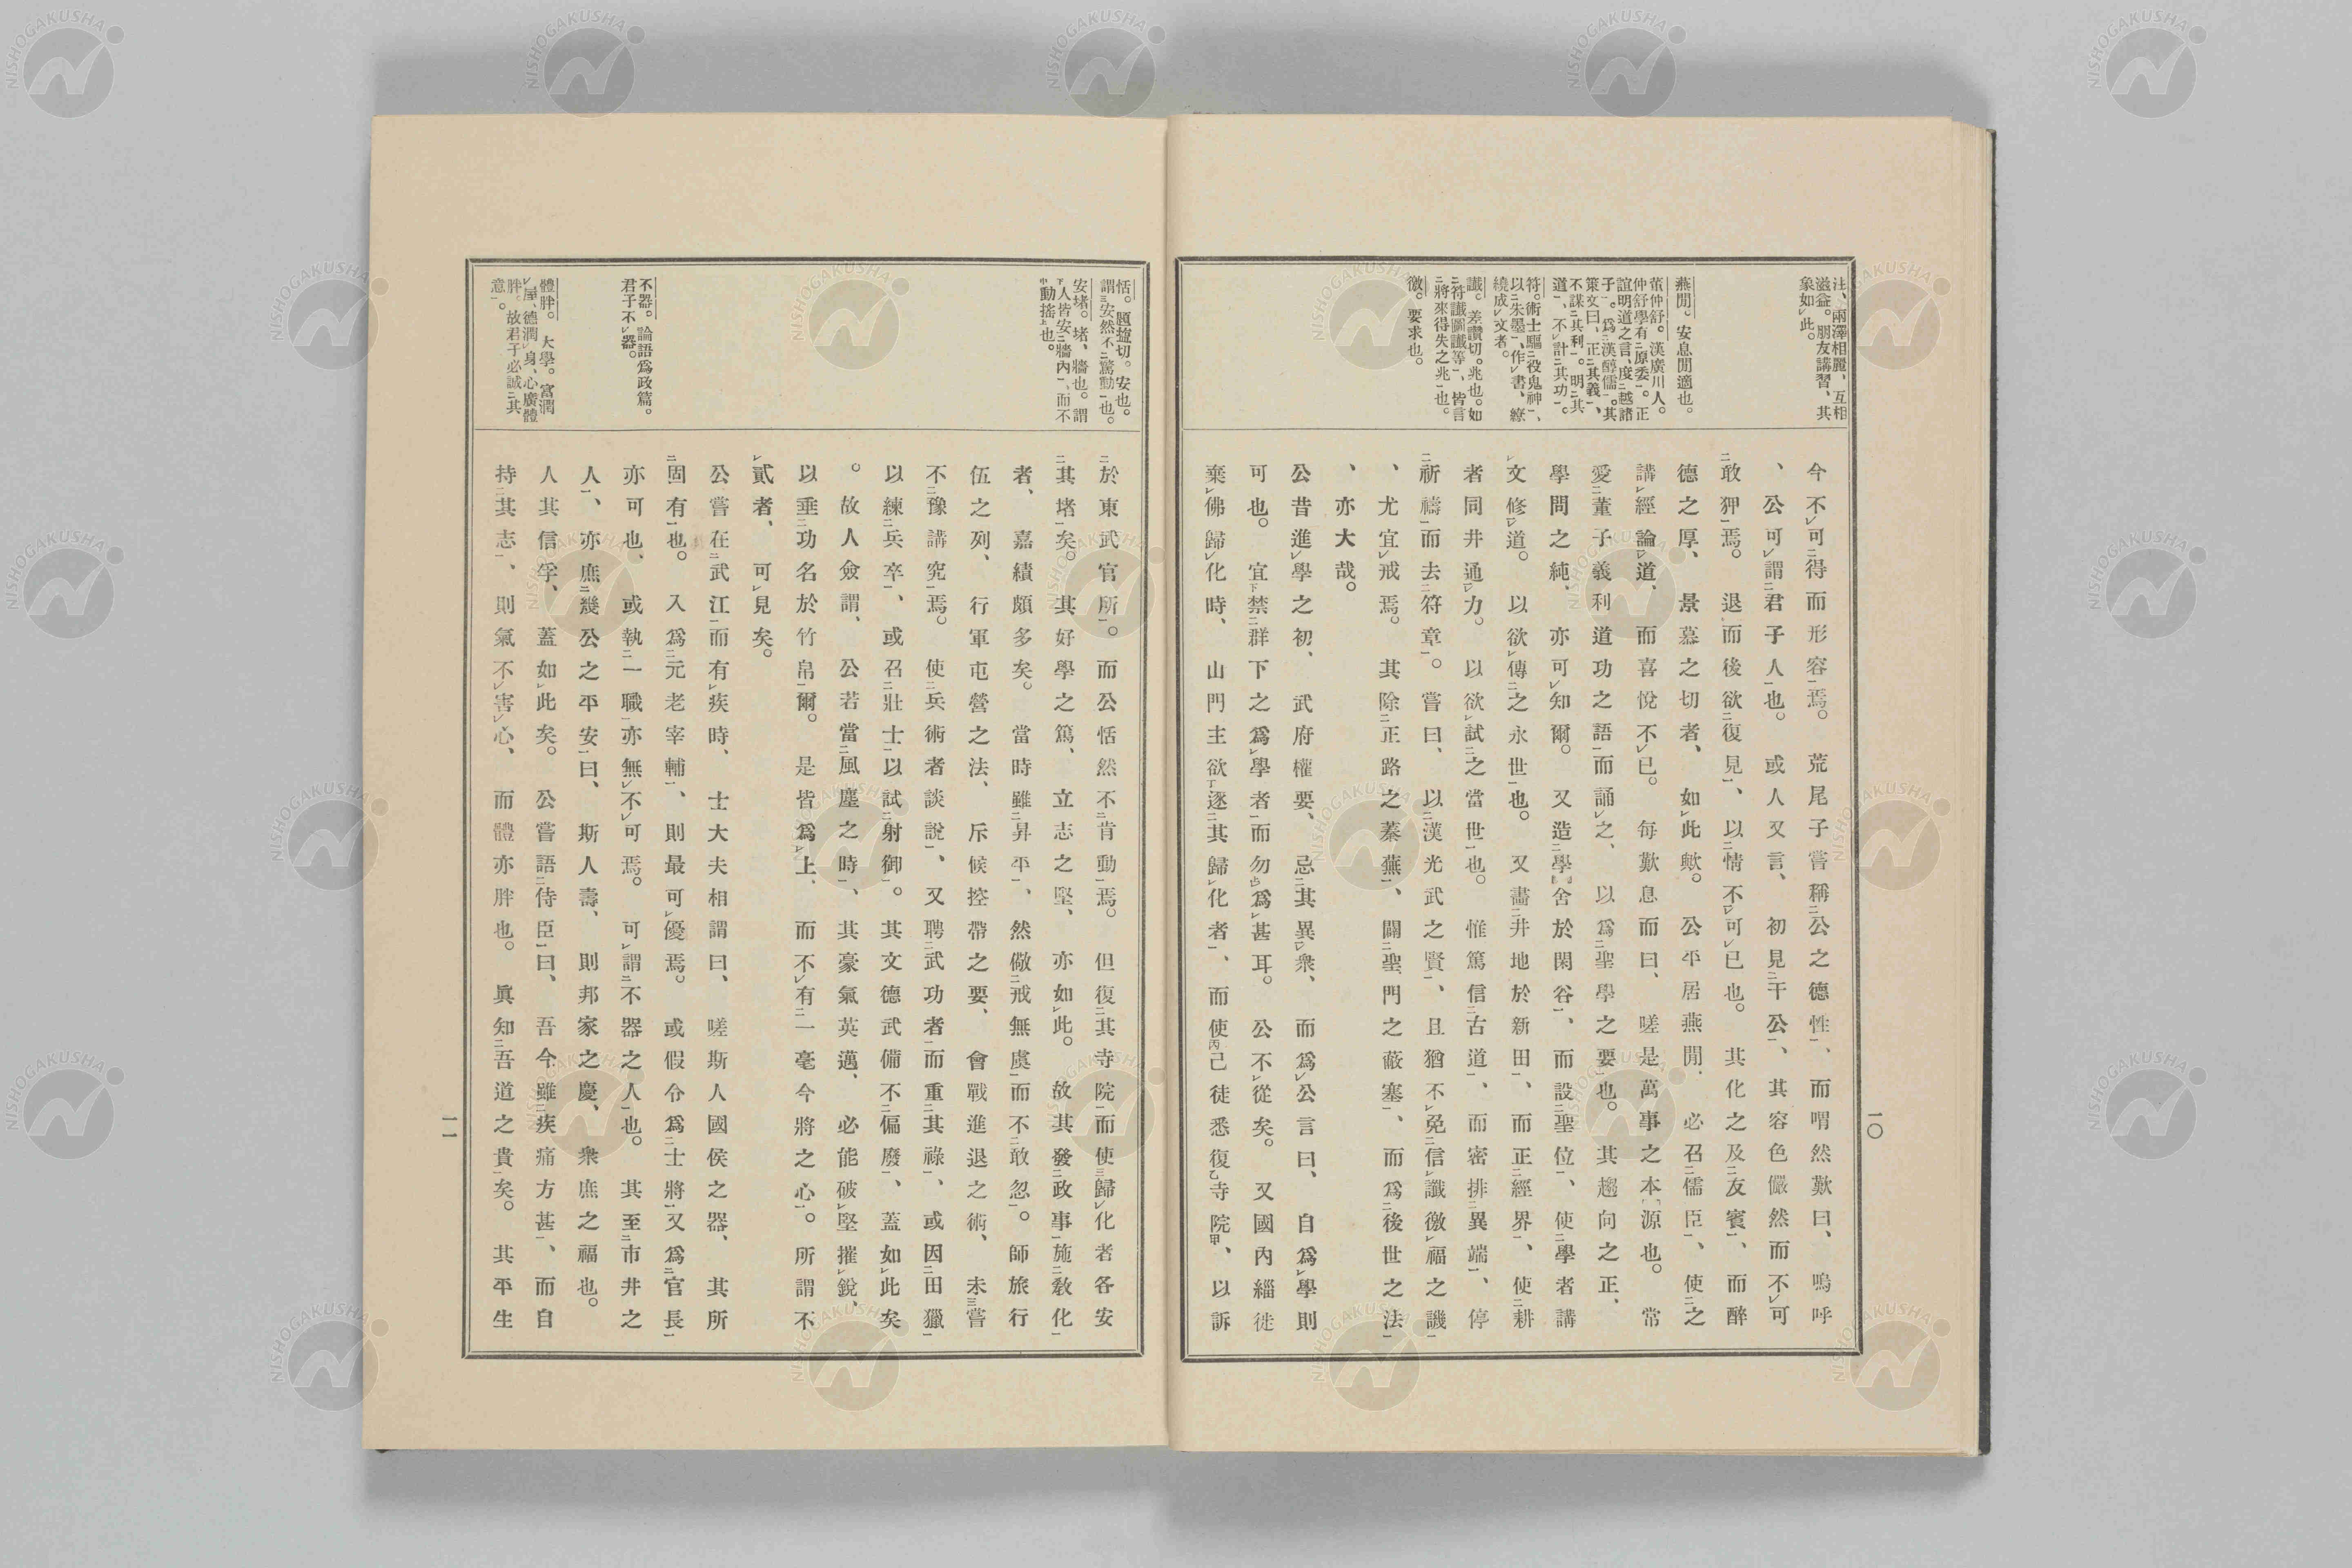 注、兩澤相麗、互相
滋益。朋友講習、其
象如㆑此。
燕閒。安息閒適也。
董仲舒。漢廣川人。
仲舒學有㆓原委㆒。正
誼明道之言、度㆓越諸
子㆒。爲㆓漢醇儒㆒。其
策文曰、正㆓其義㆒、
不謀㆓其利㆒。明㆓其
道㆒、不㆑計㆓其功㆒。
符。術士驅㆓役鬼神㆒、
以㆓朱墨㆒、作㆑書、繚
繞成㆑文者。
讖。差讚切。兆也。如
㆓符讖圖讖等㆒、皆言
㆓將來得失之兆㆒也。
徼。要求也。
今不㆑可㆓得而形容㆒焉。荒尾子嘗稱㆓公之德性㆒、而喟然歎曰、嗚呼
、公可㆑謂㆓君子人㆒也。或人又言、初見㆓干公㆒、其容色儼然而不㆑可
㆓敢狎㆒焉。退而後欲㆓復見㆒、以㆓情不㆑可㆑已也。其化之及㆓友賓㆒、而醉
德之厚、景慕之切者、如㆑此歟。公平居燕閒、必召㆓儒臣㆒、使㆓之
講㆑經論㆑道、而喜悅不㆑已。每歎息而曰、嗟是萬事之本源也。常
愛㆓董子義利道功之語㆒而誦㆑之、以爲㆓聖學之要㆒也。其趨向之正、
學問之純、亦可㆑知爾。又造㆓學舍於閑谷㆒、而設㆓聖位㆒、使㆓學者講
㆑文修㆑道。以欲㆑傳㆓之永世㆒也。又畵㆓井地於新田㆒、而正㆓經界㆒、使㆓耕
者同井通㆑力。以欲㆑試㆓之當世㆒也。惟篤信㆓古道㆒、而密排㆓異端㆒、停
㆓祈禱㆒而去㆓符章㆒。嘗曰、以㆓漢光武之賢㆒、且猶不㆑免㆓信㆑讖徼㆑福之譏㆒
、尤宜㆑戒焉。其除㆓正路之蓁蕪㆒、闢㆓聖門之蔽塞㆒、而爲㆓後世之法㆒
、亦大哉。
公昔進㆑學之初、武府權要、忌㆓其異㆑衆、而爲㆑公言曰、自爲㆑學則
可也。宜㆘禁㆓群下之爲㆑學者㆒而勿㆖爲㆑甚耳。公不㆑從矣。又國內緇徒
棄㆑佛歸㆑化時、山門主欲㆘逐㆓其歸㆑化者㆒、而使㆛己徒悉復㆚寺院㆙、以訴
一〇
恬。題嫌切。安也。
謂㆔安然不㆓驚動㆒也。
安堵。堵、牆也。謂
㆘人皆安㆓牆內㆒、而不
㆗動搖㆖也。
不器。論語爲政篇。
君子不㆑器。
體胖。大學。富潤
㆑屋、德潤㆑身、心廣體
胖。故君子必誠㆓其
意㆒。
㆓於東武官所㆒。而公恬然不㆓肯動㆒焉。但復㆓其寺院㆒而使㆔歸㆑化者各安
㆓其堵㆒矣。其好學之篤、立志之堅、亦如㆑此。故其發㆓政事㆒施㆓敎化㆒
者、嘉績頗多矣。當時雖㆓昇平㆒、然儆㆓戒無虞㆒而不㆓敢忽㆒。師旅行
伍之列、行軍屯營之法、斥候控帶之要、會戰進退之術、未㆔嘗
不㆓豫講究㆒焉。使㆓兵術者談說㆒、又聘㆓武功者㆒而重㆓其祿㆒、或因㆓田獵㆒
以練㆓兵卒㆒、或召㆓壯士㆒以試㆓射御㆒。其文德武備不㆓偏廢㆒、蓋如㆑此矣
。故人僉謂、公若當㆓風塵之時㆒、其豪氣英邁、必能破㆑堅摧㆑銳、
以垂㆓功名於竹帛㆒爾。是皆爲㆑上、而不㆑有㆓一毫今將之心㆒。所謂不
㆑貳者、可㆑見矣。
公嘗在㆓武江㆒而有㆑疾時、士大夫相謂曰、嗟斯人國侯之器、其所
㆓固有㆒也。入爲㆓元老宰輔㆒、則最可㆑優焉。或假令爲㆓士將㆒又爲㆓官長㆒
亦可也、或執㆓一職㆒亦無㆑不㆑可焉。可㆑謂㆓不器之人㆒也。其至㆓市井之
人㆒、亦庶㆓幾公之平安㆒曰、斯人壽、則邦家之慶、衆庶之福也。
人其信孚、蓋如㆑此矣。公嘗語㆓侍臣㆒曰、吾今雖㆓疾痛方甚㆒、而自
持㆓其志㆒、則氣不㆑害㆑心、而體亦胖也。眞知㆓吾道之貴㆒矣。其平生
一一